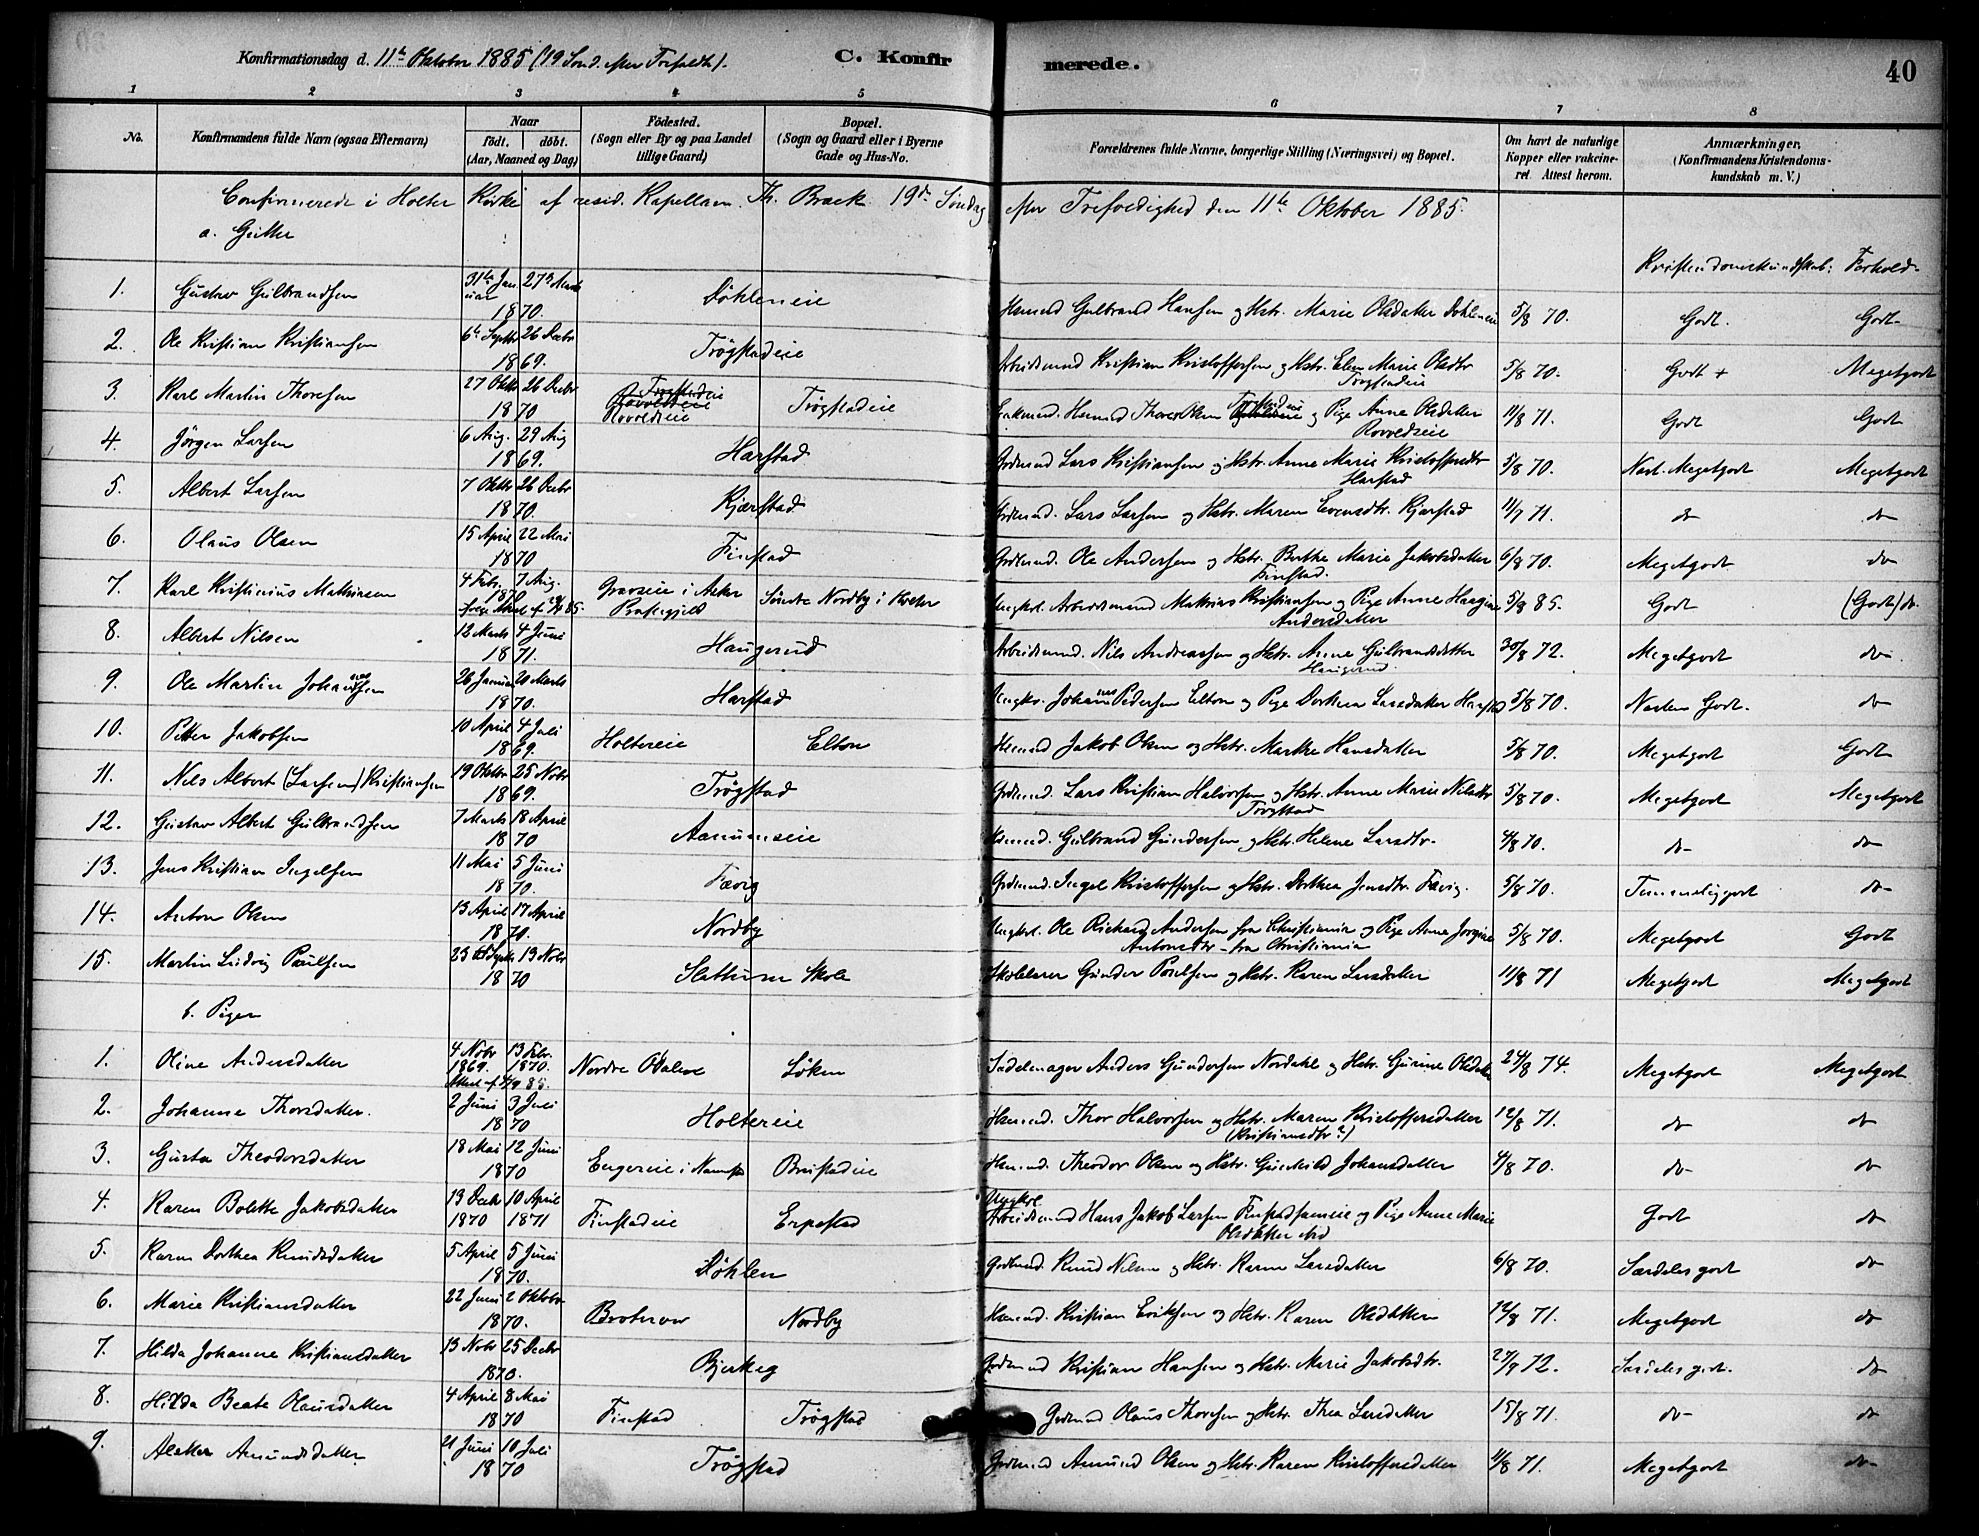 Konfirmationsdag d. 11te Oktober 1885 (19 Sönd. efter Trefoldh).
C. Konfirmerede.
40
1 2 3 4 5 6 7 8
No. Konfirmandens fulde Navn (ogsaa Efternavn) Naar født. døbt. (Aar, Maaned og Dag) Födested. (Sogn eller By og paa Landet tillige Gaard) Bopæl. (Sogn og Gaard eller i Byerne Gade og Hus-No. Forældrenes fulde Navne, borgerlige Stilling (Næringsvei) og Bopæl. Om havt de naturlige Kopper eller vakcineret. Attest herom. Anmærkninger. (Konfirmandens Kristendomskundskab m. V.)
Confirmerede i Holter Kirke af resid. Kapellan Th. Braek 19de Söndag efter Trefoldighed den 11te Oktober 1885.
a. Gutter
Kristendomskundskab: Forhold-
1. Gustav Gulbrandsen 31te Januar 27de Marts 1870. Döhleneie Husmd Gulbrand Hansen og Hstr. Marie Olsdatter Döhleneie 5/8 70. Godt. Godt
2. Ole Kristian Kristiansen 6te Septbr 26 Decbr 1869. Trögstadeie Arbeidsmand Kristian Kristoffersen og Hstr. Elen Marie Olsdtr Trögstadeie 5/8 70. Godt + Megetgodt
3. Karl Martin Thoresen 27 Oktbr 26 Decbr 1870 Rovoldeie Trögstadeie Husmd Thore Olsen Trögstadeie og Pige Anne Olsdatter Rovoldseie 11/8 71. Godt Godt
4. Jörgen Larsen 6 Aug. 29 Aug 1869. Harstad Grdmand Lars Kristiansen og Hstr. Anne Marie Kristoffersdtr Harstad 5/8 70. Næst. Megetgodt Megetgodt
5. Albert Larsen 7 Oktbr 26 Decbr 1870. Kjærstad Grdmand. Lars Larsen og Hstr. Maren Evensdtr. Kjærstad 11/7 71. do do
6. Olaus Olsen 15 April 22 Mai 1870 Finstad Grdmand. Ole Andersen og Hstr. Berthe Marie Jakobsdatter Finstad. 6/8 70. Megetgodt do
7. Karl Kristinius Mathisen 4 Febr. 7 Aug. 1870 Græseie i Asker Præstegjeld Söndre Nordby i Holter Ungkrl. Arbeidsmand Mathias Kristiansen og Pige Anne Haagine Andersdatter 5/8 85. Godt (Godt) do.
8. Albert Nilsen 12 Marts 4 Juni 1871. Haugerud Arbeidsmand. Nils Andreassen og Hstr. Anne Gulbrandsdatter Haugerud 30/8 72. Megetgodt do
9. Ole Martin Johannessen 26 Januar 20 Marts 1870. Harstad Ungkr. Johannes Pedersen Elton og Pige Dorthea Larsdatter Harstad 5/8 70. Næsten Godt. do
10. Petter Jakobsen 10 April 4 Juli 1869. Holtereie Elton Husmand Jakob Olsen og Hstr. Marthe Hansdatter 5/8 70. Megetgodt Godt
11. Nils Albert (Larsen) Kristiansen 19 Oktbr 25 Novbr 1869. Trögstad Grdmand. Lars Kristian Halvorsen og Hstr. Anne Marie Nilsdtr Trögstad 5/8 70. Megetgodt Megetgodt
12. Gustav Albert Gulbrandsen 7 Marts 18 April 1870 Aanumseie Husmd. Gulbrand Gundersen og Hstr. Helene Larsdtr. 4/8 70. do do
13. Jens Kristian Ingelsen 11 Mai 5 Juni 1870. Fævig Grdmand. Ingel Kristoffersen og Hstr. Dorthea Jensdtr. Fævig. 5/8 70. Temmeliggodt do
14. Anton Olsen 13 April 17 April 1870. Nordby Ungkrl. Ole Richard Andersen fra Christiania og Pige Anne Jorgine Antonsdtr fra Christiania 5/8 70. Megetgodt Godt
15. Martin Ludvig Paulsen 23 Septbr 13 Novbr 1870 Slathum Skole Skolelærer Gunder Paulsen og Hstr. Karen Larsdatter 11/8 71 Megetgodt Megetgodt
b. Piger
1. Oline Andersdatter 4 Novbr 1869. 13 Febr. 1870. Nordre Odalen Löken Sadelmager Anders Gundersen Nordahl og Hstr. Gurine Olsdatter 24/8 74. Megetgodt Megetgodt
2. Johanne Thorsdatter. 2 Juni 3 Juli 1870 Holtereie Husmd. Thor Halvorsen og Hstr. Maren Kristoffersdatter (Kristiansdtr?) 12/8 71. do do
3. Gusta Theodorsdatter 18 Mai 12 Juni 1870 Engereie i Nannestad Brustadeie Husmd. Theodor Olsen og Hstr. Gunhild Johansdatter 4/8 70. do do
4. Karen Bolette Jakobsdatter 13 Decbr 1870 10 April 1871 Finstadeie Erpestad Ungkrl Arbeidsmand Hans Jakob Larsen Finstadsameie og Pige Anne Marie Olsdatter ibid Godt do
5. Karen Dorthea Knudsdatter 5 April 5 Juni 1870. Döhlen Grdmand. Knud Nilsen og Hstr. Karen Larsdatter 6/8 70. Særdeles godt do
6. Marie Kristiansdatter 22 Juni 2 Oktober 1870. Broterow Nordby Husmd. Kristian Eriksen og Hstr. Karen Olsdatter 12/8 71. Megetgodt do
7. Hilda Johanne Kristiansdatter 13 Novbr 25 Decbr 1870. Bjerkeg Grdmand Kristian Hansen og Hstr. Marie Jakobsdtr. 27/9 72. Særdeles godt. do
8. Hilda Beate Olausdatter 4 April 8 Mai 1870 Finstad Trögstad Grdmand Olaus Thoresen og Hstr. Thea Larsdatter 15/8 71. do do
9. Alette Amundsdatter 21 Juni 10 Juli 1870 Trögstad Grdmand Amund Olsen og Hstr. Karen Kristoffersdatter 11/8 71. Megetgodt do